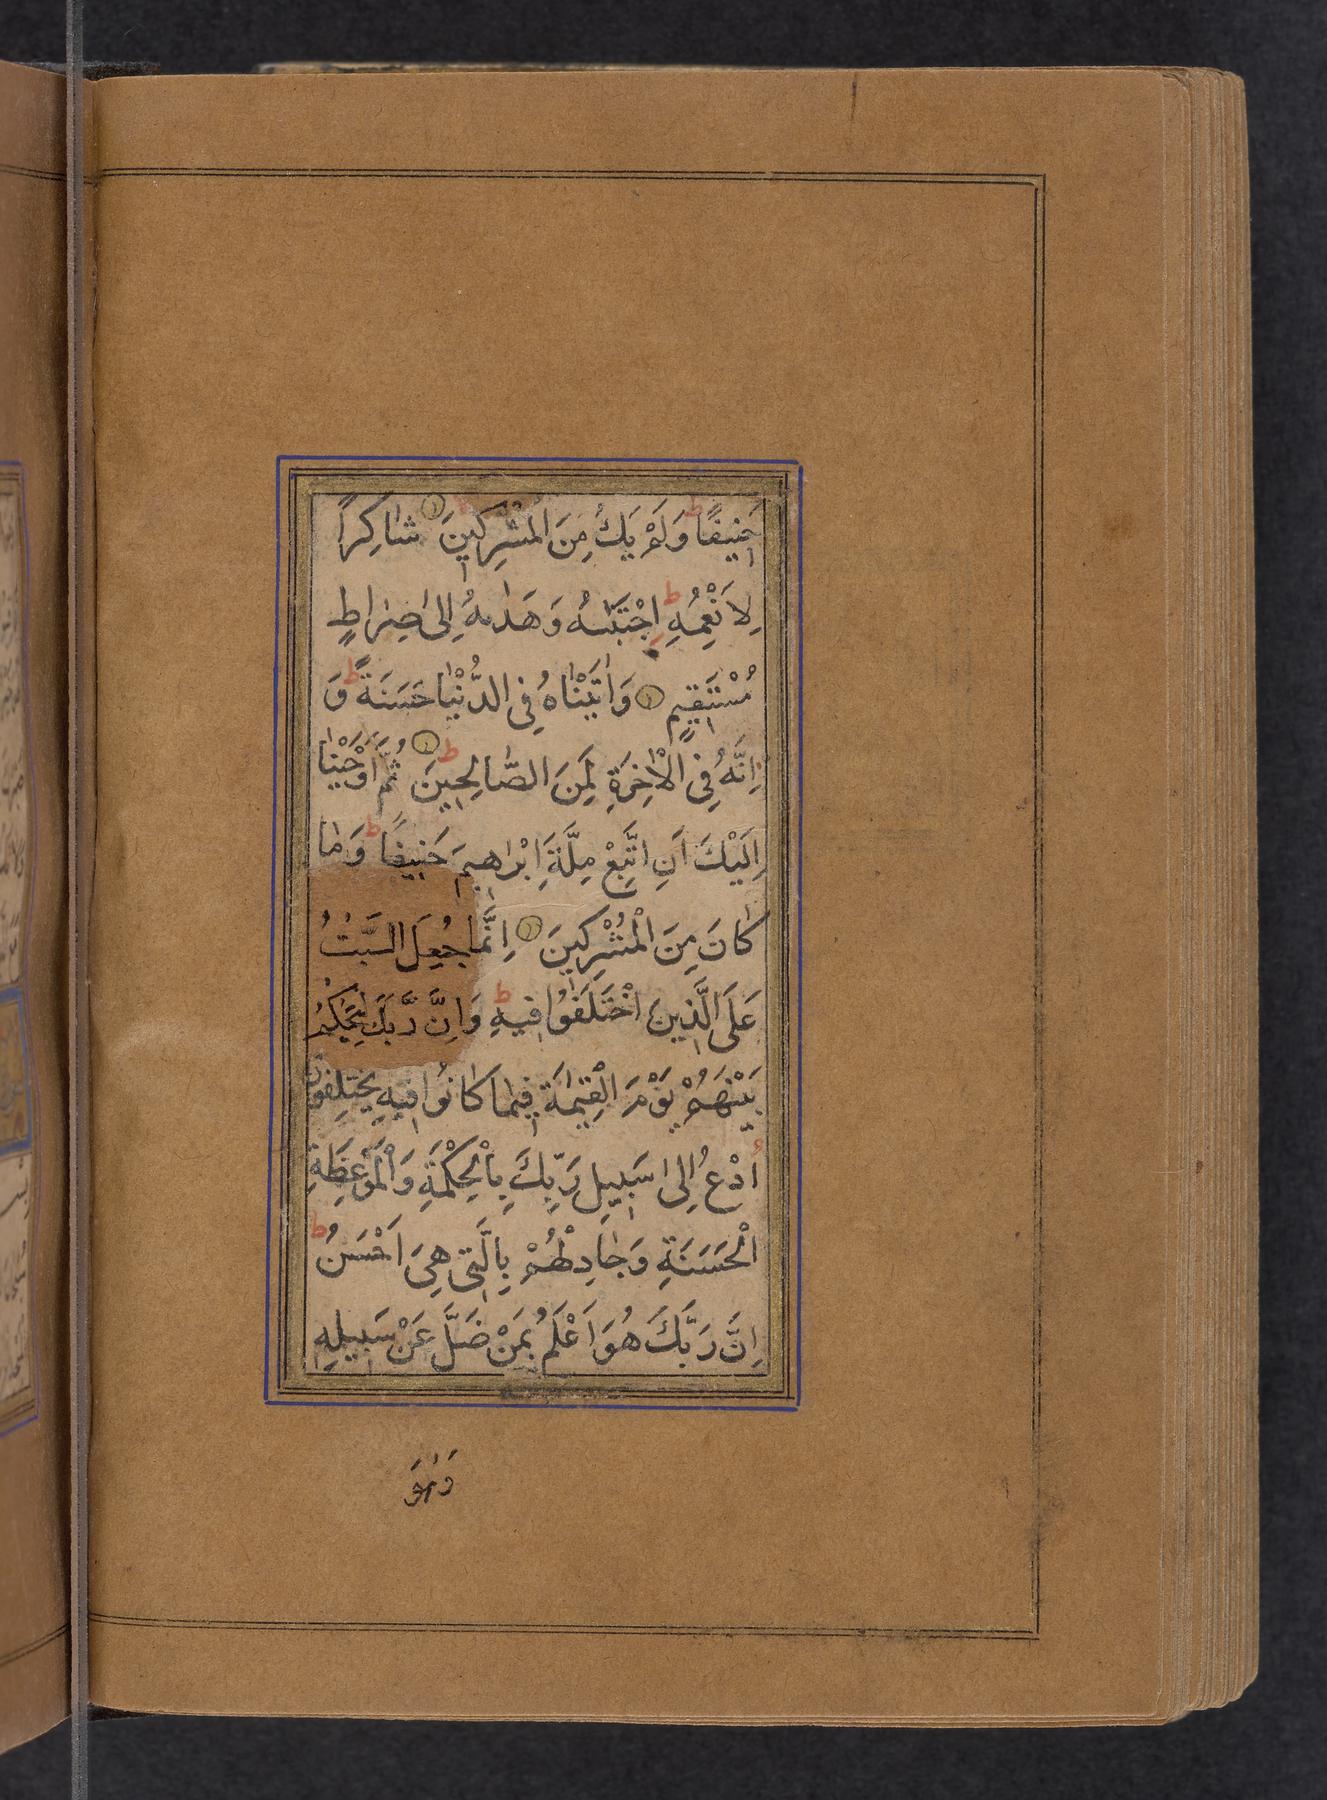 حَنِيفًا ط وَلَمْ يَكُ مِنَ الْمُشْرِكِينَ شَاكِرًا
لِاَنْعُمِهِ ط اِجْتَبٰىهُ وَهَدٰىهُ اِلىٰ صِرَاطٍ
مُسْتَقِيمٍ وَاٰتَيْنَاهُ فِي الدُّنْيَا حَسَنَةً ط وَ
اِنَّهُ فِي الْاٰخِرَةِ لَمِنَ الصَّالِحِينَ ط ثُمَّ اَوْحَيْنَا
اِلَيْكَ اَنِ اتَّبِعْ مِلَّةَ اِبْرٰهِيمَ حَنِيفًا ط وَمَا
كَانَ مِنَ الْمُشْرِكِينَ اِنَّمَا جُعِلَ السَّبْتُ
عَلَى الَّذِينَ اخْتَلَفُوا فِيهِ ط وَاِنَّ رَبَّكَ لَيَحْكُمُ
بَيْنَهُمْ يَوْمَ الْقِيٰمَةِ فِيمَا كَانُوا فِيهِ يَخْتَلِفُونَ
اُدْعُ اِلىٰ سَبِيلِ رَبِّكَ بِالْحِكْمَةِ وَالْمَوْعِظَةِ
الْحَسَنَةِ وَجَادِلْهُمْ بِالَّتِي هِيَ اَحْسَنُ ط
اِنَّ رَبَّكَ هُوَ اَعْلَمُ بِمَنْ ضَلَّ عَنْ سَبِيلِهِ
وَهُوَ